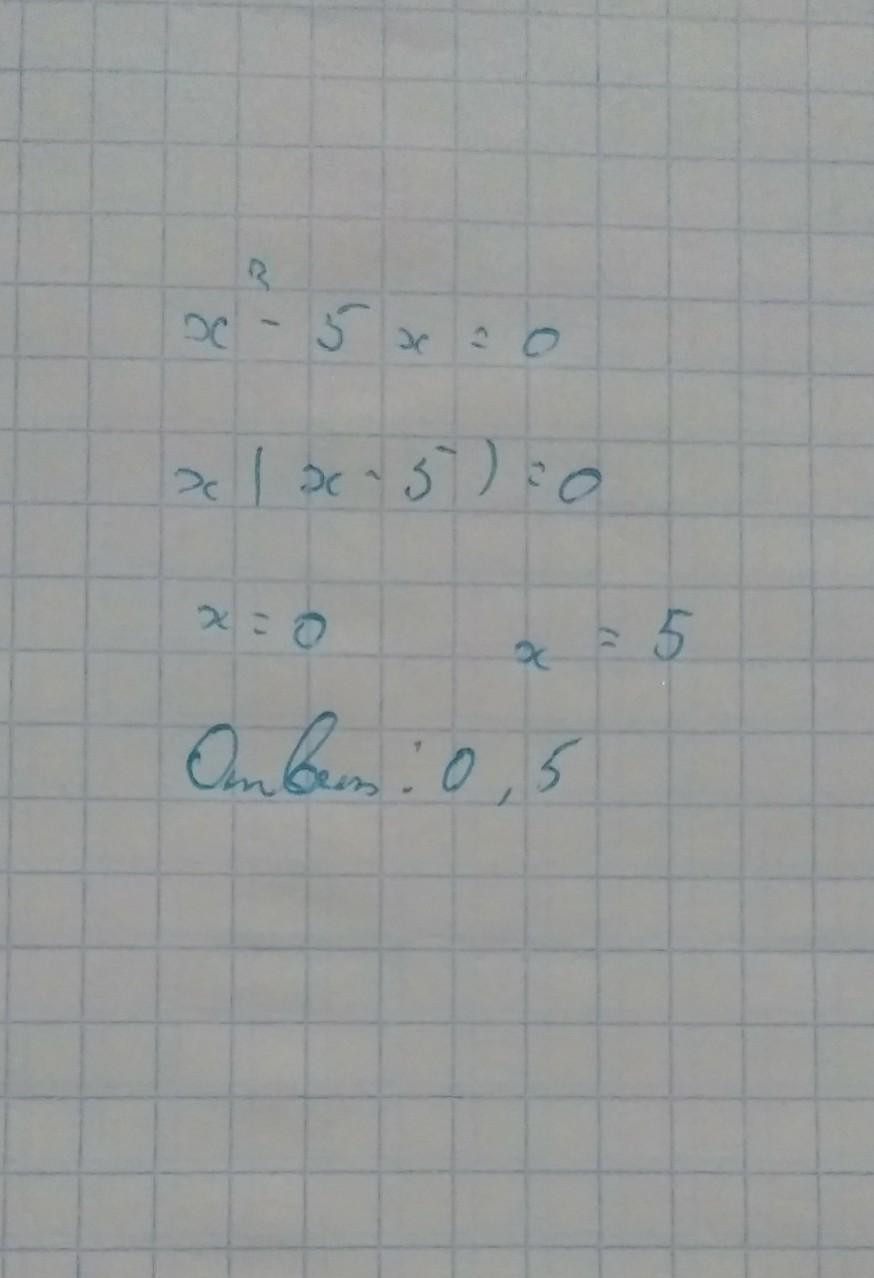 x² - 5x = 0
x(x - 5) = 0
x = 0 x = 5
Ответ: 0, 5